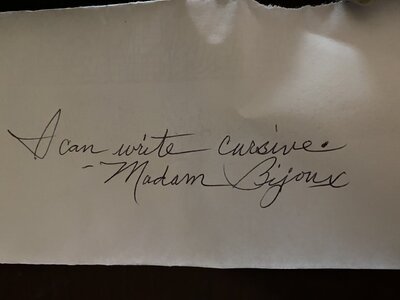 I can write cursive.
- Madam Bijoux